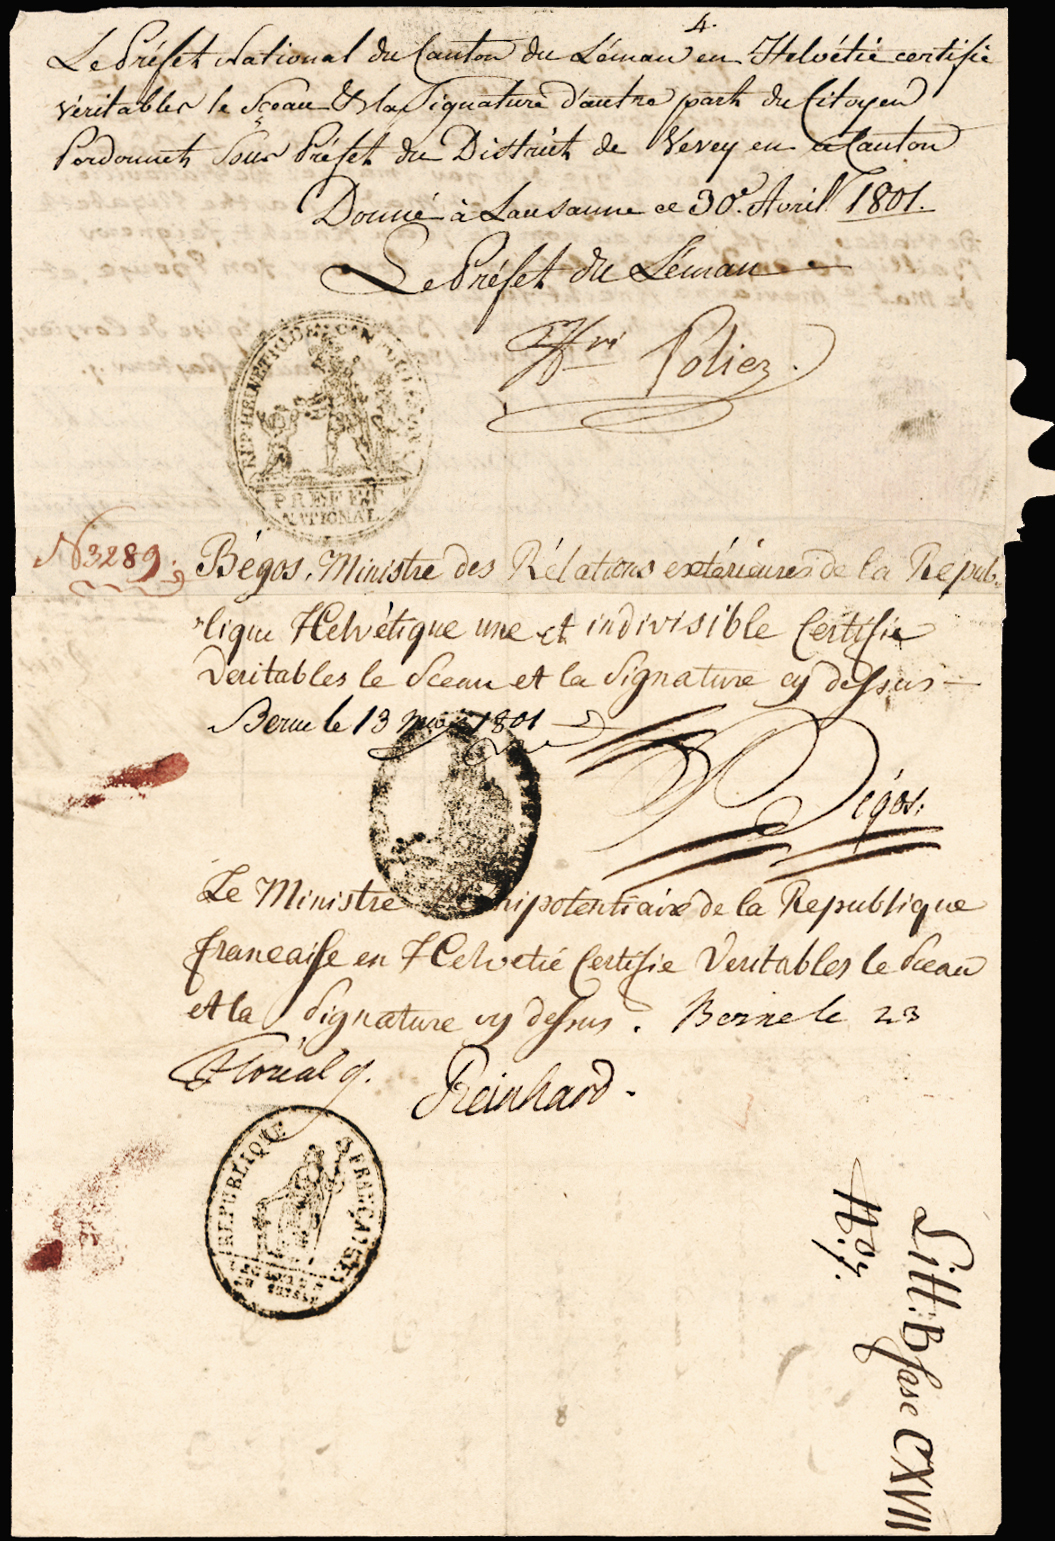 4.
Le Préfet National du Canton du Léman en Helvétie certifie
véritables le Sceau & la Signature d'autre part du Citoyen
Perdonnet Sous Préfet du District de Vevey en ce Canton
Donné à Lausanne ce 30e. Avril 1801.
Le Préfet du Léman
Hri Polier.
PREFET
NATIONAL
N 3289.
Bégos, Ministre des Rélations extérieures de la Répub-
lique Helvétique une et indivisible Certifie
Veritables le Sceau et la Signature cy dessus
Berne le 13 may 1801
Bégos.
Le Ministre Plenipotentiaire de la Republique
francaise en Helvetie Certifie Veritables le Sceau
et la Signature cy dessus. Berne le 23
Floréal 9.
Reinhard.
REPUBLIQUE FRANÇAISE
No 7.
Litt: B fasc CXVII